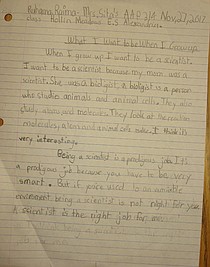 Mrs. Sita's AAP 2/A Nov, 27, 2017
Hollin Meadows E.S Alexandria,
What I Want to be When I Grow up
When I grow up I want to be a scientist.
I want to be a scientist because my mom was a
scientist. She was a biologist, a biologist is a person
who studies animals and animal cells. They also
study, atoms and molecules. They look at the
molecules, atoms and animal cells make. I think it's
very interesting.
Being a scientist is prodigous job. It's
a prodigous job because you have to be very
smart. But if your used to an amiable
environment being a scientist is not right for you.
A scientist is the right job for me.